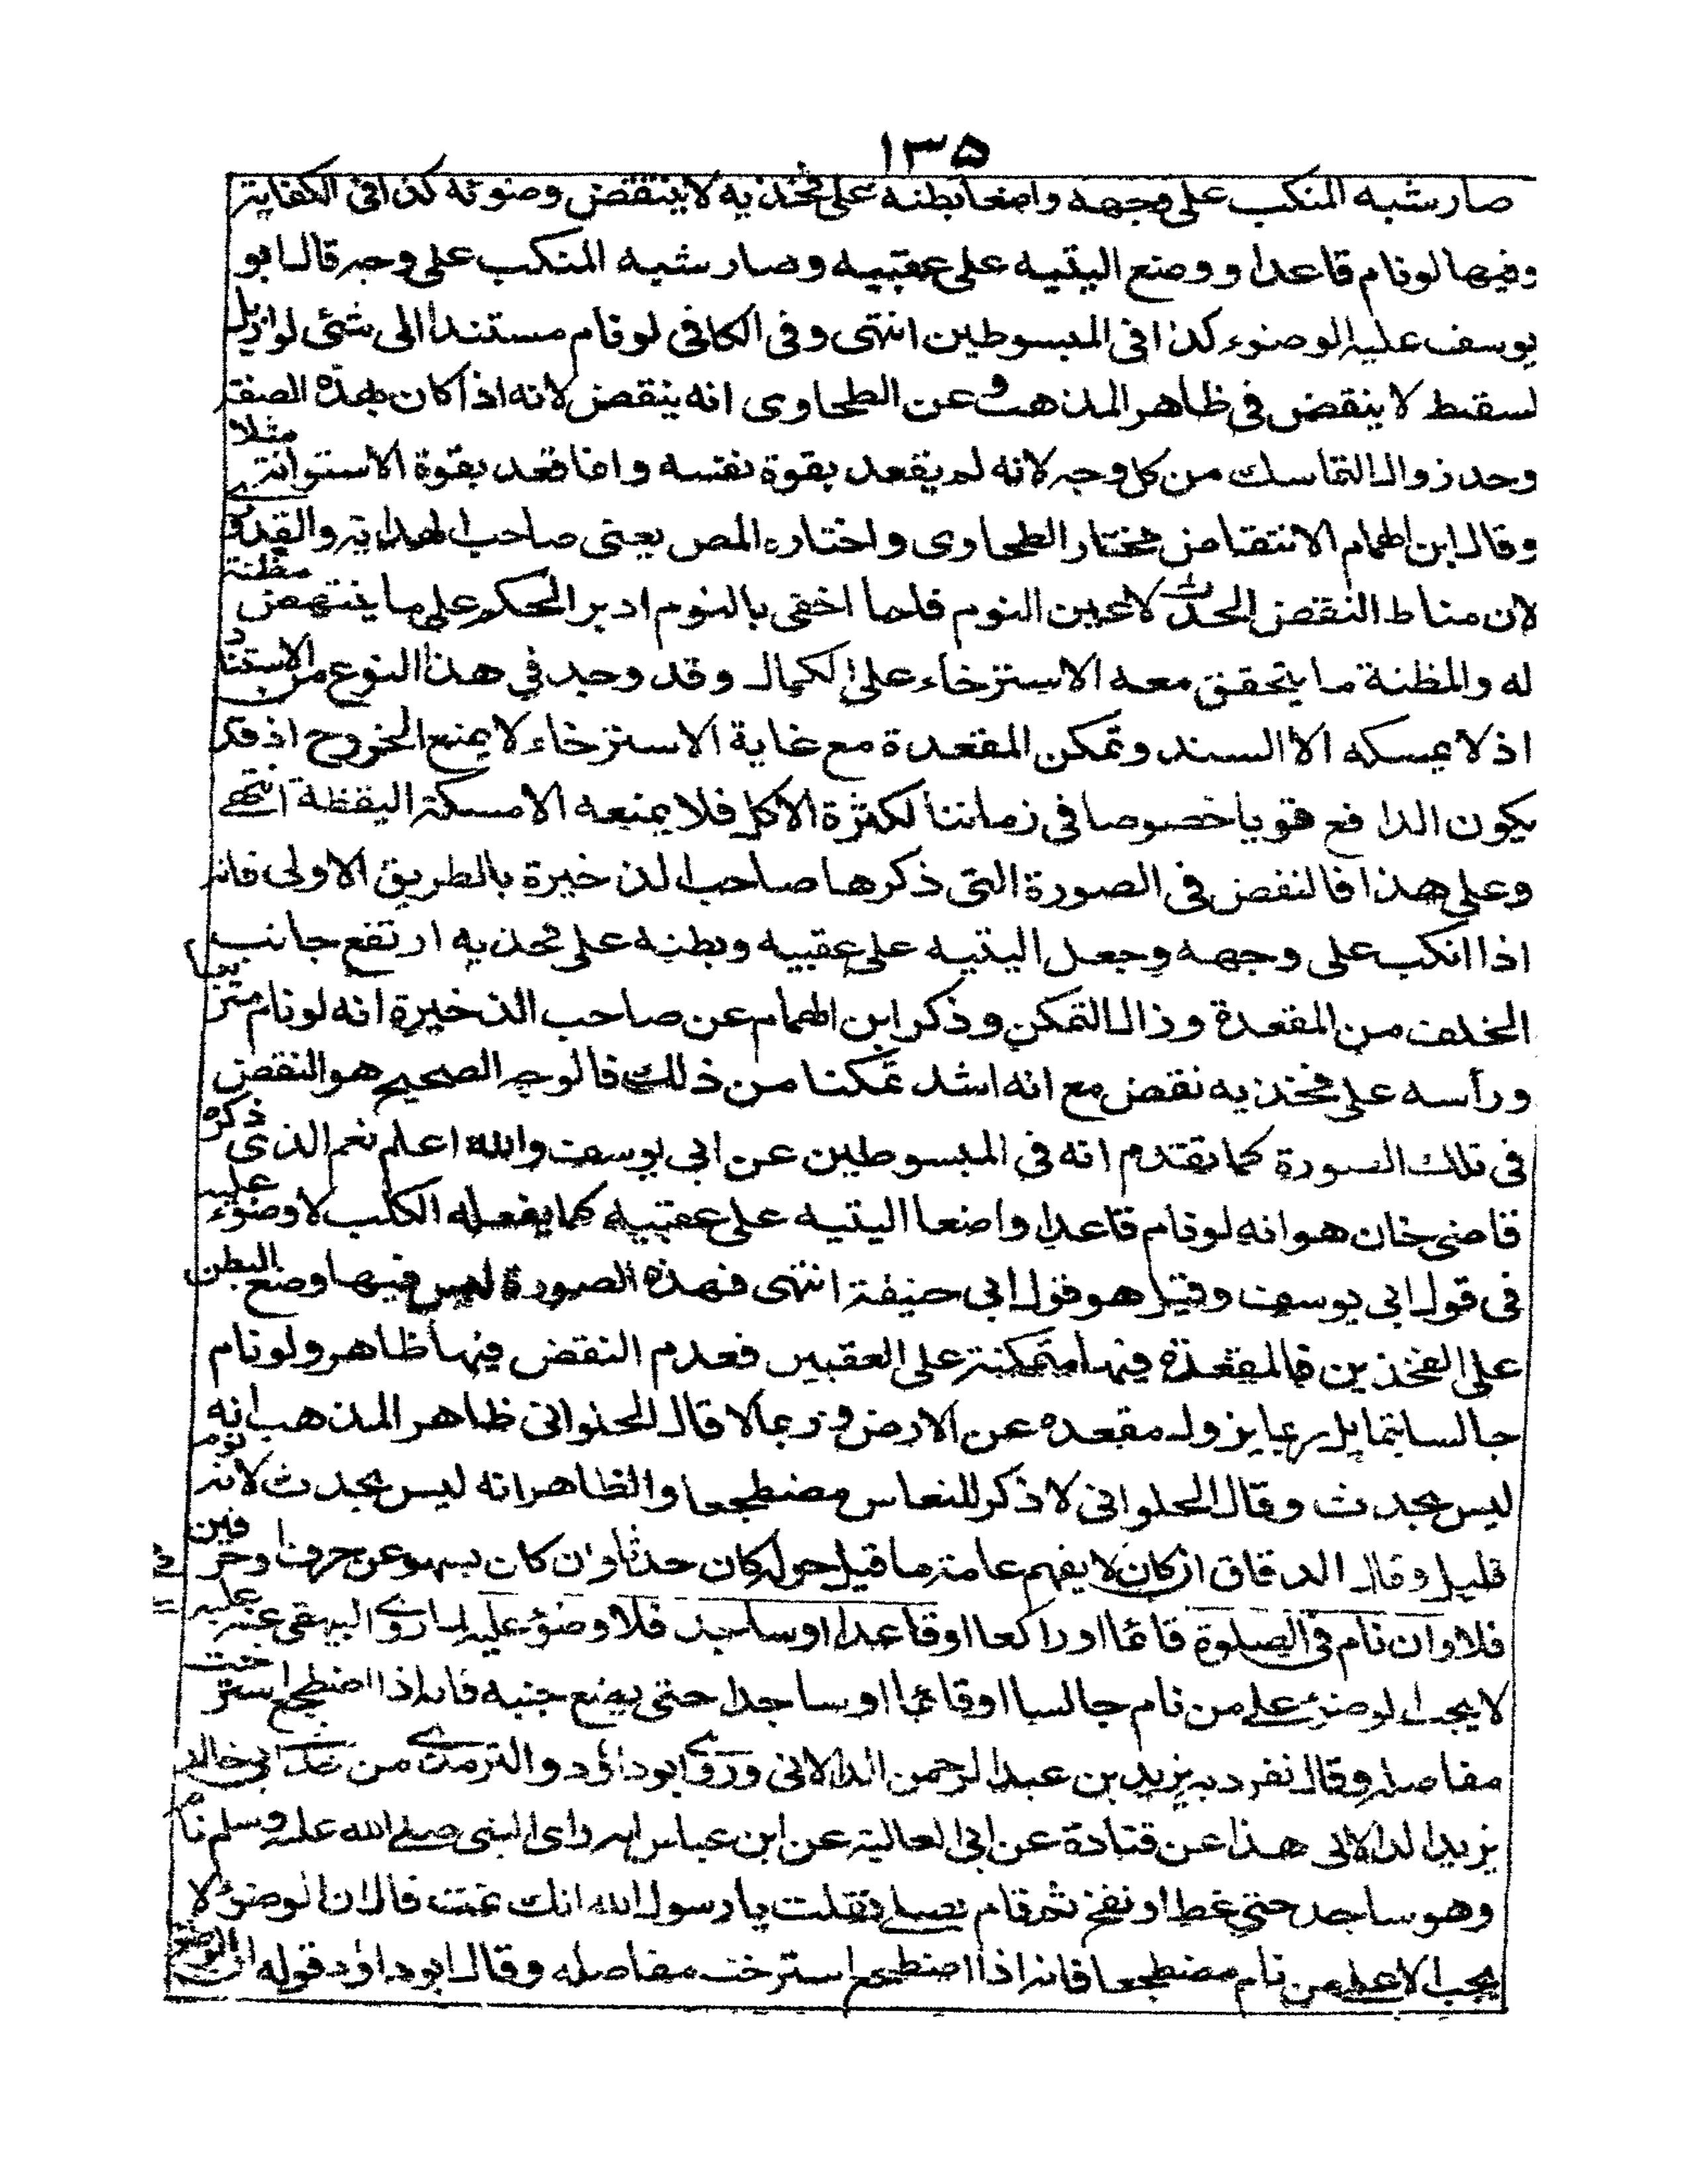 ١٣۵
صار شبه المنكب على وجهه واضعا بطنه على فخذيه لا ينتقض وضوئه كذا فى الكفاية
وفيها لو نام قاعدا ووضع اليتيه على عقبيه وصار شبه المنكب على وجهه قال ابو
يوسف عليه الوضوء كذا فى المبسوطين انتهى وفى الكافى لو نام مستندا الى شئ لو ازيل
لسقط لا ينقض فى ظاهر المذهب وعن الطحاوى انه ينقض لانه اذا كان بهذه الصفة مثلا
وجد زوال التماسك من كل وجه لانه لم يقعد بقوة نفسه وانما قعد بقوة الاستوانة
وقال ابن الهمام الانتقاض مختار الطحاوى واختاره المص يعنى صاحب الهداية والقدورى
لان مناط النقض الحدث لا عين النوم فلما اخفى بالنوم ادير الحكم على ما ينتهض مظنة
له والمظنة ما يتحقق معه الاسترخاء على الكمال وقد وجد فى هذا النوع من الاستناد
اذ لا يمسكه الا السند وتمكن المقعدة مع غاية الاسترخاء لا يمنع الخروج اذ قد
يكون الدافع قويا خصوصا فى زماننا لكثرة الاكل فلا يمنعه الا مسكة اليقظة انتهى
وعلى هذا فالنقض فى الصورة التى ذكرها صاحب الذخيرة بالطريق الاولى فانه
اذا انكب على وجهه وجعل اليتيه على عقبيه وبطنه على فخذيه ارتفع جانب
الخلف من المقعدة وزال التمكن وذكر ابن الهمام عن صاحب الذخيرة انه لو نام متربعا
ورأسه على فخذيه نقض مع انه اشد تمكنا من ذلك فالوجه الصحيح هو النقض
فى تلك الصورة كما تقدم انه فى المبسوطين عن ابى يوسف والله اعلم نعم الذى ذكره
قاضى خان هو انه لو نام قاعدا واضعا اليتيه على عقبيه كما يفعله الكلب لا وضوء عليه
فى قول ابى يوسف وقيل هو قول ابى حنيفة انتهى فهذه الصورة ليس فيها وضع البطن
على الفخذين فالمقعدة فيها متمكنة على العقبين فعدم النقض فيها ظاهر ولو نام
جالسا يتمايل ربما يزول مقعده عن الارض وربما لا قال الحلوانى ظاهر المذهب انه
ليس بحدث وقال الحلوانى لا ذكر للنعاس مضطجعا والظاهر انه ليس بحدث لانه نوم
قليل وقال الدقاق ان كان لا يفهم عامة ما قيل حوله كان حدثا وان كان يسهو عن حرف او حرفين
فلا وان نام فى الصلوة قائما او راكعا او قاعدا او ساجد فلا وضؤ عليه لما روى البيهقى عنه عليه
لا يجب الوضوء على من نام جالسا او قائما او ساجدا حتى يضع جنبه فانه اذا اضطجع استرخت
مفاصله وقال تفرد به يزيد بن عبد الرحمن الدالانى وروى ابو داؤد والترمذى من حديث ابى خالد
يزيد الدالانى هذا عن قتادة عن ابى العالية عن ابن عباس انه راى النبى صلى الله عليه وسلم نام
وهو ساجد حتى غط او نفخ ثم قام يصلى فقلت يا رسول الله انك نمت قال ان الوضوء لا
يجب الا على من نام مضطجعا فانه اذا اضطجع استرخت مفاصله وقال ابو داؤد قوله ان الوضوء